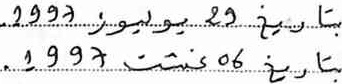 بتاريخ 29 يوليوز 1997.
بتاريخ 06 غشت 1997.